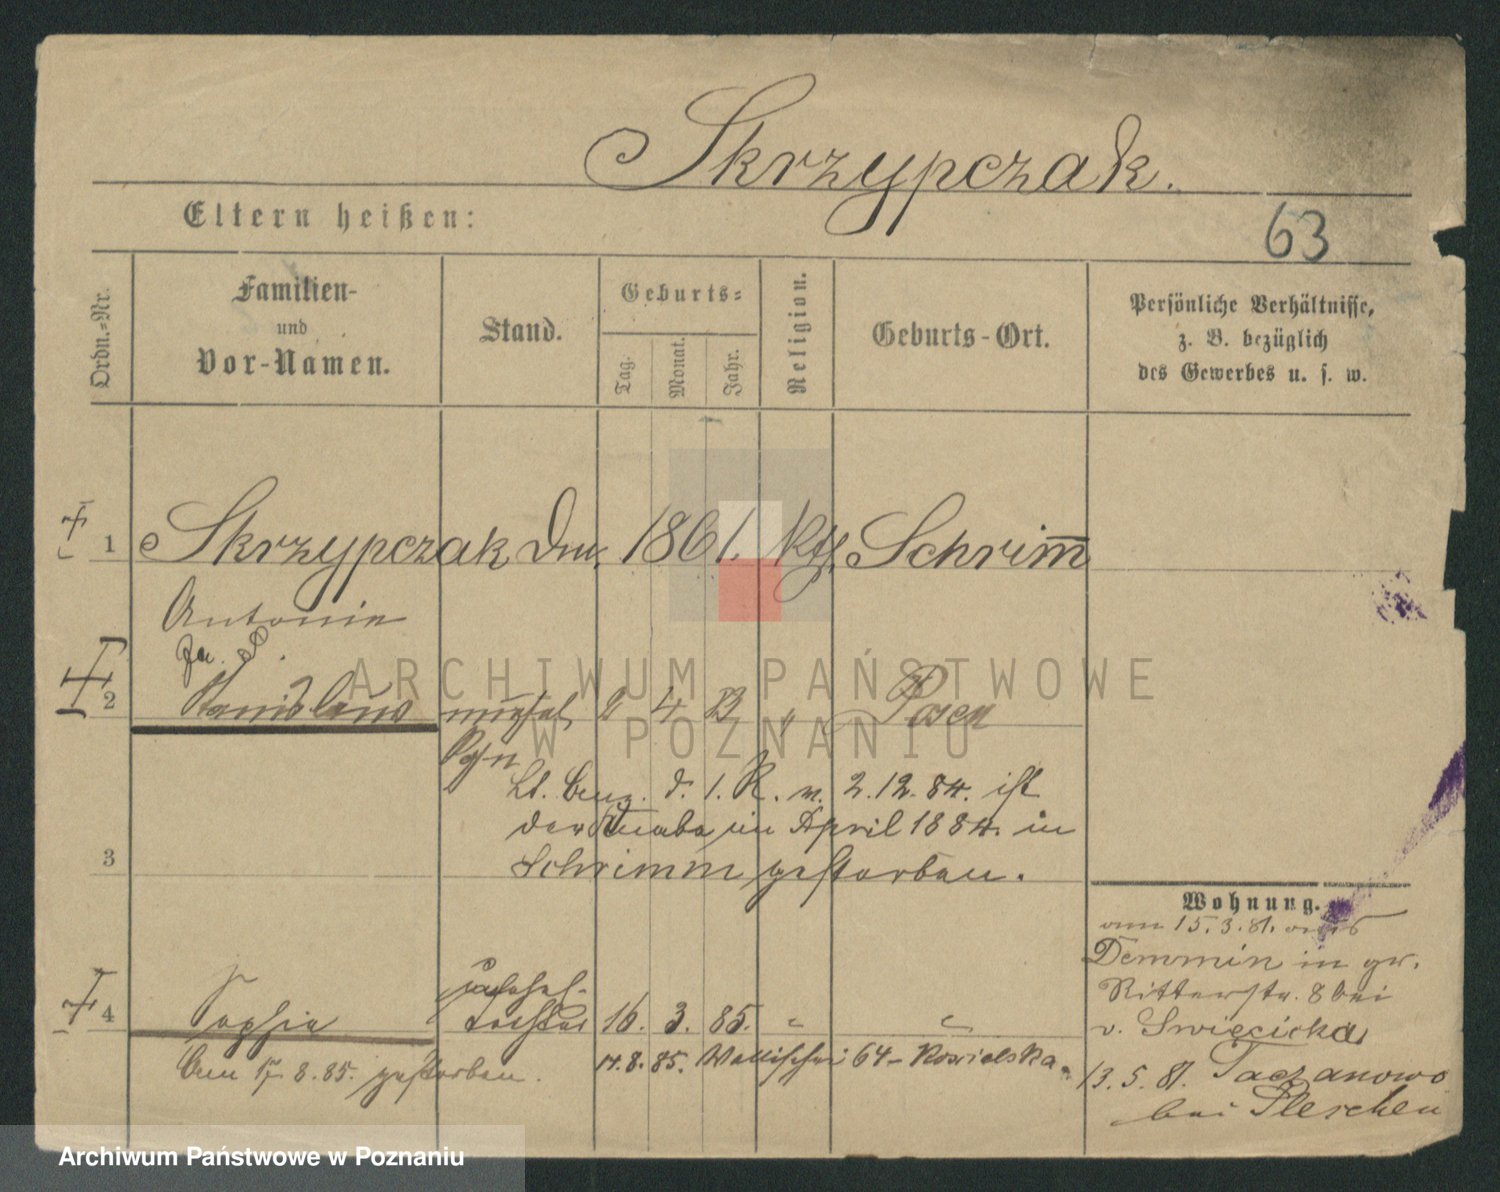 Skrzypczak.
Eltern heißen:
63
Ordn.-Nr.
Familien-
und
Vor-Namen.
Stand.
Geburts-
Tag.
Monat.
Jahr.
Religion.
Geburts-Ort.
Persönliche Verhältnisse,
z. B. bezüglich
des Gewerbes u. s. w.
1 Skrzypczak 1861. Kth. Schrim̅
Antonie
2 Stanislaus 2 4 Posen
Sohn
d. 1. R. v. 2.12.84. ist
der Knabe im April 1884. in
3 Schrimm gestorben.
Wohnung.
am 15.3.81. aus
Demmin in gr.
Ritterstr. 8 bei
4 Sophia Tochter 16. 3. 85. "
v. Swiecicka
am 17. 8. 85. gestorben.
14.8.85. Wallischei 64 - Kosielska.
13.5.81. Taczanowo
bei Pleschen
ARCHIWUM PAŃSTWOWE
W POZNANIU
Archiwum Państwowe w Poznaniu